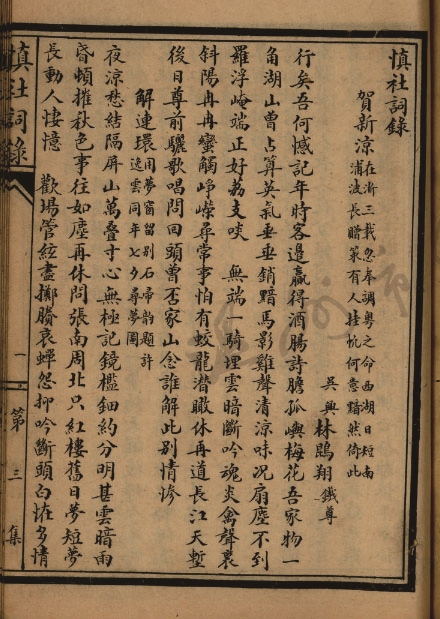 慎社詞錄
賀新涼 在浙三載忽奉調粵之命西湖日短南
浦波長贈策有人挂帆何意黯然倚此
吳興林鵾翔鐵尊
行矣吾何憾記年時客邊贏得酒腸詩膽孤嶼梅花吾家物一
角湖山曾占算英氣垂垂銷黯馬影雞聲清涼味況扇塵不到
羅浮崦端正好荔支啖 無端一騎埋雲暗斷吟魂炎禽聲裏
斜陽冉冉蠻觸崢嶸尋常事怕有蛟龍潛瞰休再道長江天塹
後日尊前驪歌唱問回頭曾否家山念誰解此別情慘
解連環 用夢窗留別石帚韵題許
達雲同年七夕尋夢圖
夜涼愁結隔屏山萬叠寸心無極記鏡檻鈿約分明甚雲暗雨
昏頓摧秋色事往如塵再休問張南周北只紅樓舊日夢短夢
長動人悽憶 歡場管絃盡擲賸哀蟬怨抑吟斷頭白恠多情
慎社詞錄
一
第三集